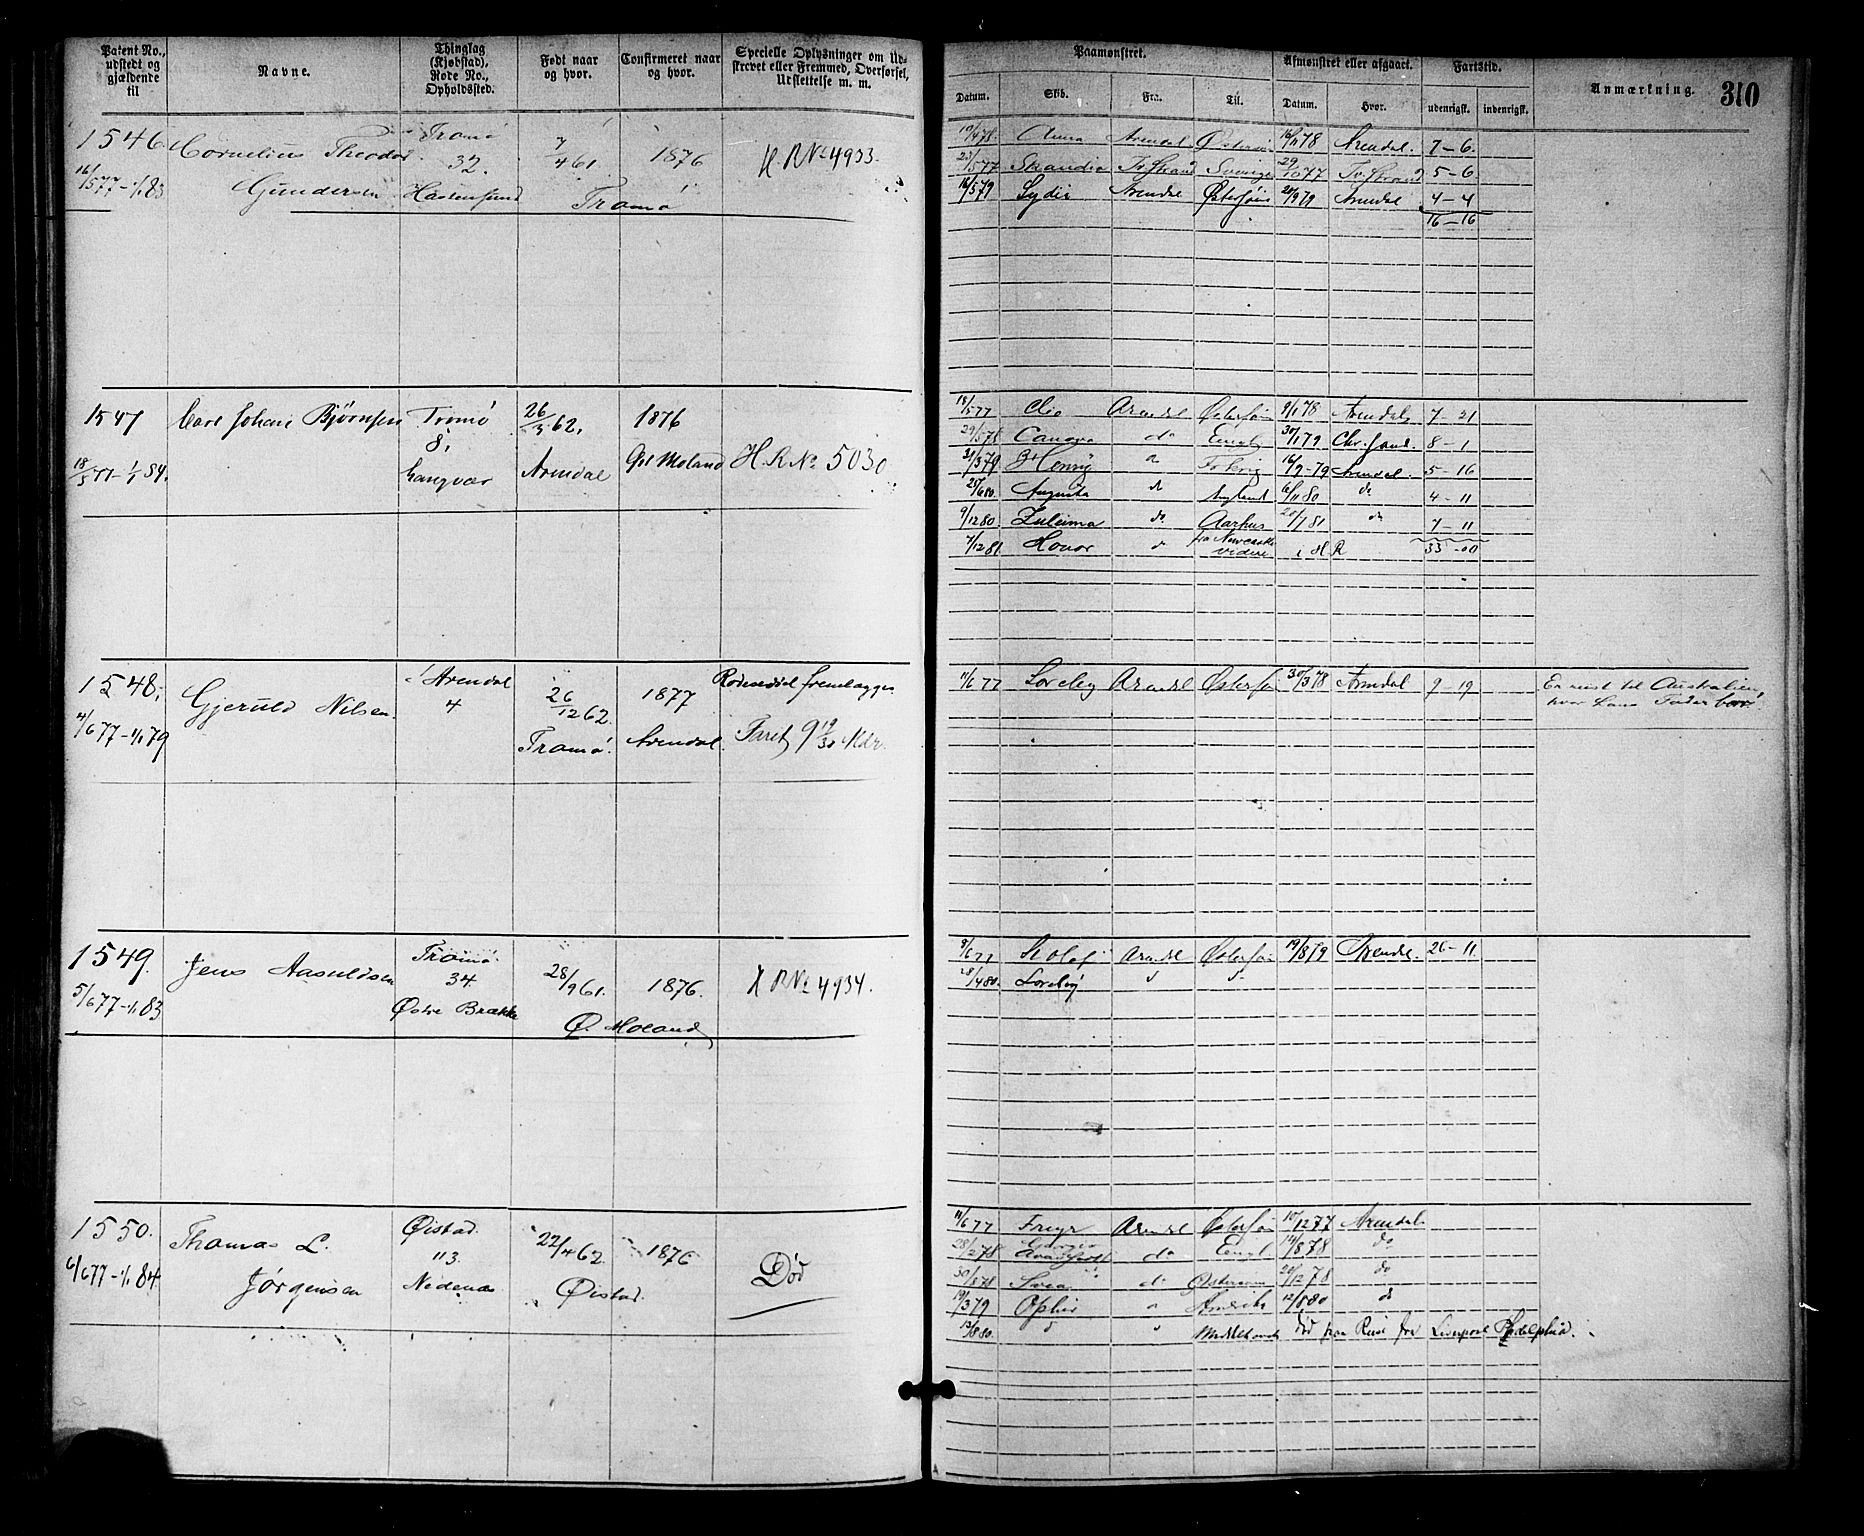 Patent No., udstedt og gjældende til
Navne.
Thinglag (Kjøbstad), Rode No., Opholdssted.
Født naar og hvor.
Confirmeret naar og hvor.
Specielle Oplysninger om Udskrevet eller Fremmed, Overførsel, Udslettelse m. m.
Paamønstret.
Datum.
Skib.
Fra.
Til.
Afmønstret eller afgaaet.
Datum.
Hvor.
Fartstid.
udenrigsk.
indenrigsk.
Anmærkning.
310
1546
16/5 77 - 1/1 83
Cornelius Theodor
Gundersen
Tromø
32.
7/4 61
1876
Tromø
H R No 4933.
10/4 78 Anna Arendal 78 Arendal. 7-6
23/5 77 Skandia Sverige 29/10 77 5-6
16/5 79 Lydia Arendal Østersøen 79 Arendal 4-4
16-16
1547
18/5 77 - 1/1 84.
Carl Johan Bjørnsen
Tromø
8,
Langvær
26/3 62,
Arendal
1876
Øst Moland
H. R No 5030
18/5 77 Clio Arendal Østersøen 9/1 78 Arendal 7-21
29/5 78 Canova do Engl 30/1 79 Chr.sand. 8-1
31/3 79 Henrig 16/9-79 Arendal. 5-16
Augusta do England 6/11 80 do 4-11
9/12 80. Zuleima do Aarhus 20/7 81 do 7-11
7/12 81 Honor fra Newcastle videre i H R 33-00
1548,
4/6 77 - 1/1 79
Gjeruld Nilsen.
Arendal
4
26/12 62.
Tromø.
1877
Arendal.
Rodeseddel fremlagges
Faret 9 19/30 Mdr.
11/6 77 Loveley Arendl Østersøen 30/3 78 Arendal 9-19
Er reist til Australien,
hvor hans Fader boer.
1549.
5/6 77 - 1/1 83
Jens Aasuldsen
Tromø.
34
Østre Brække
28/9 61.
1876.
Ø. Moland
H R No 4934.
8/6 77 Arendl Østersøen 19/8 79 Arendl. 26-11
28/4 80. Loveley
1550.
6/6 77 - 1/1 84
Thomas L.
Jørgensen
Øistad.
113
Nedenæs
22/4 62.
1876
Øistad.
Død
11/6 77 Freyr Arendl Østersøen 15/12 77 Arendal
28/2 78 do Engl 14/8 78 do
30/8 78 Svea do Østersøen 20/12 78 do
19/3 79 Ophir Amerika 12/8 80 do
13/8 80. Middelhavet Død paa Reise fra Liverpool Philadelphia.